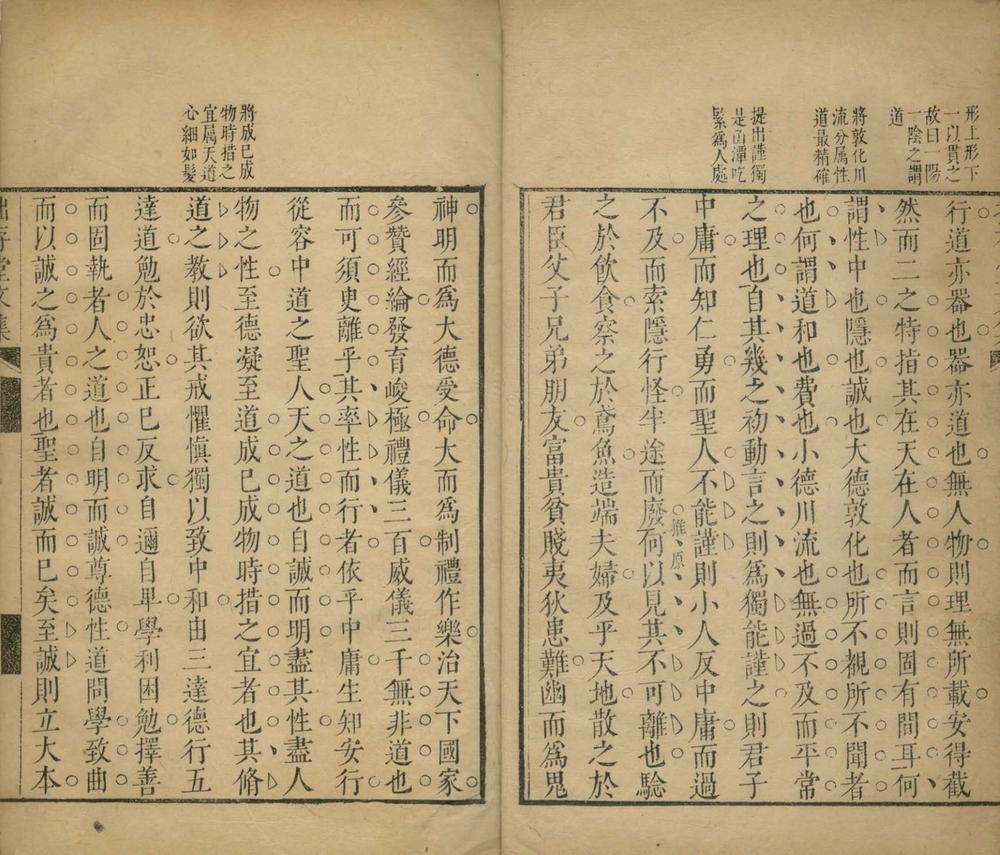 形上形下
一以貫之
故曰一陽
一陰之謂
道
將敦化川
流分属性
道最精確
提出謹獨
是函潭吃
緊爲人處
行道亦器也器亦道也無人物則理無所載安得截
然而二之特指其在天在人者而言則固有間耳何
謂性中也隱也誠也大德敦化也所不覩所不聞者
也何謂道和也費也小德川流也無過不及而平常
之理也自其幾之初動言之則爲獨能謹之則君子
中庸而知仁勇而聖人不能謹則小人反中庸而過
不及而索隱行怪半途而廢何以見其不可離也驗
推原
之於飲食察之於鳶魚造端夫婦及乎天地散之於
君臣父子兄弟朋友富貴貧賤夷狄患難幽而爲鬼
將成巳成
物時措之
宜属天道
心細如髮
神明而爲大德受命大而爲制禮作樂治天下國家
參贊經綸發育峻極禮儀三百威儀三千無非道也
而可須史離乎其率性而行者依乎中庸生知安行
從容中道之聖人天之道也自誠而明盡其性盡人
物之性至德凝至道成巳成物時措之宜者也其脩
道之教則欲其戒懼愼獨以致中和由三達德行五
達道勉於忠恕正巳反求自邇自卑學利困勉擇善
而固執者人之道也自明而誠尊德性道問學致曲
而以誠之爲貴者也聖者誠而巳矣至誠則立大本
堂文集